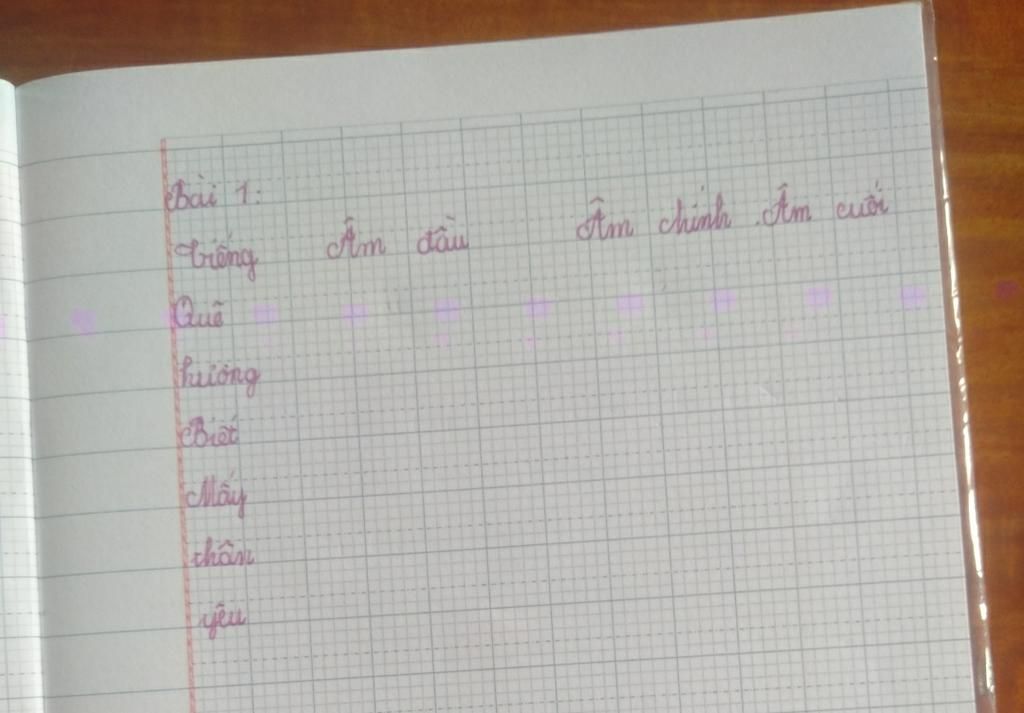 Bài 1:
Tiếng Âm đầu Âm chính Âm cuối
Quê
hương
Biết
Mấy
thân
yêu